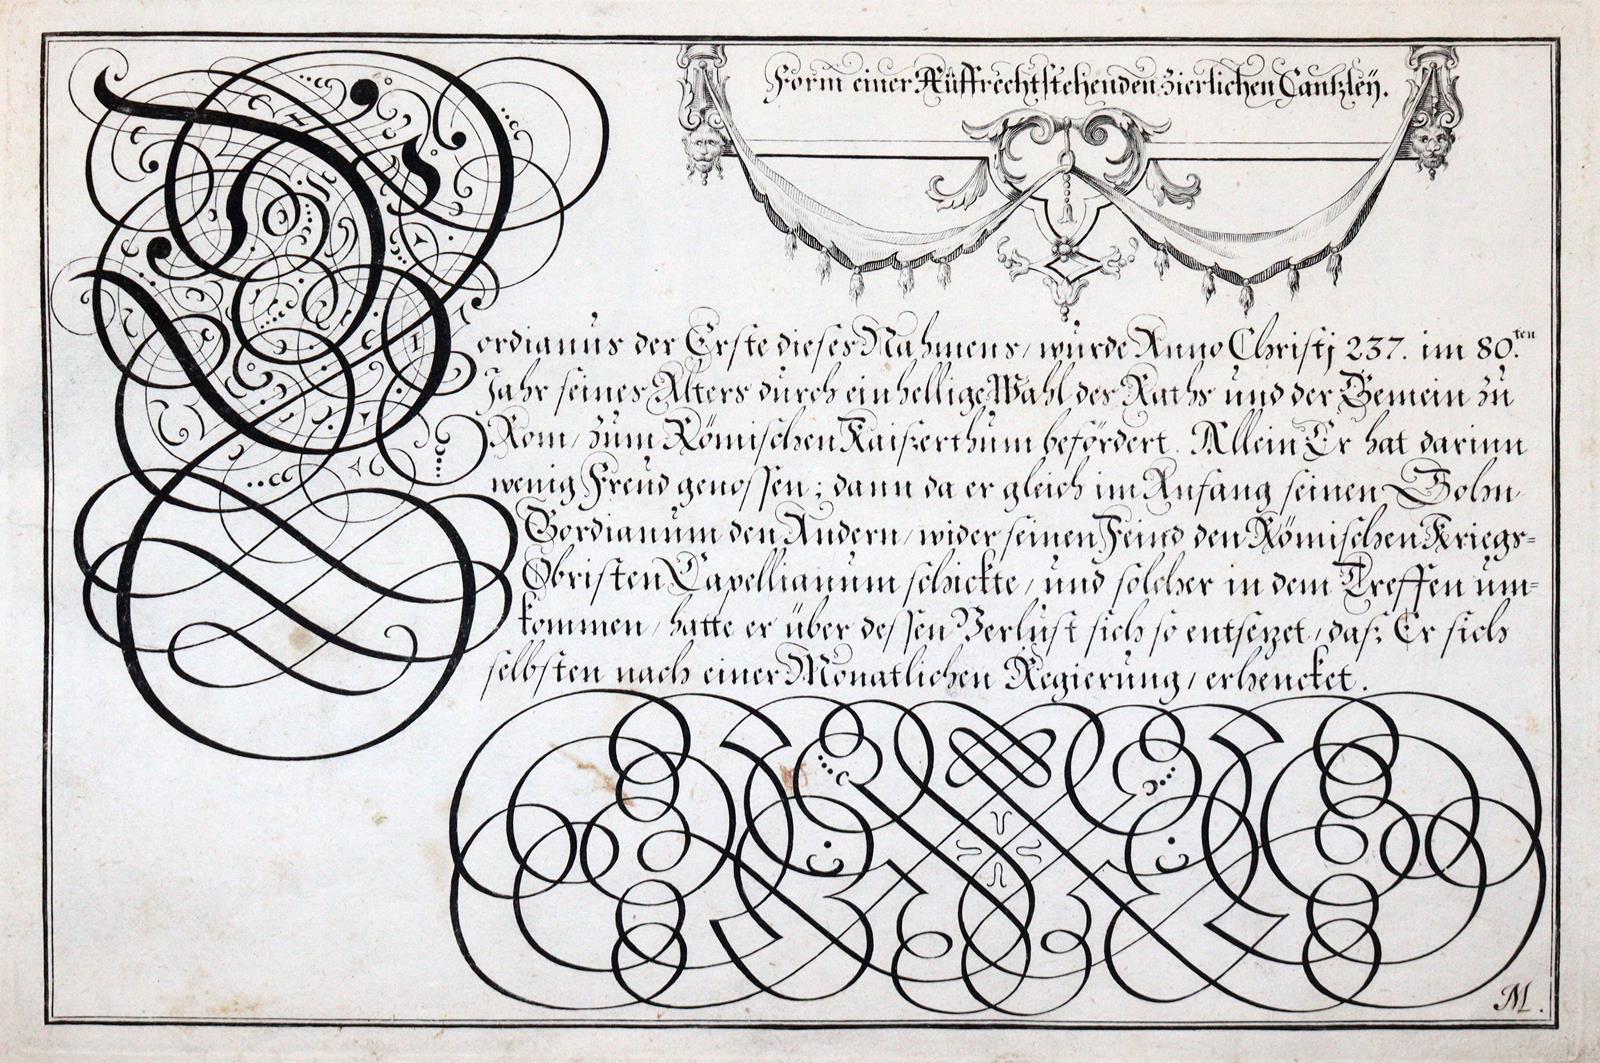 Form einer Auffrechtstehenden zierlichen Cantzleÿ.
Gordianus der Erste dieses Nahmens / wurde Anno Christj 237. im 80.ten
Jahr seines Alters durch einhellige Wahl des Raths und der Gemein zu
Rom / zum Römischen Kaiserthum befördert. Allein Er hat darinn
wenig Freud genossen; dann da er gleich im Anfang seinen Sohn
Gordianum den Andern / wider seinen Feind den Römischen Kriegs=
Obristen Capellianum schickte / und solcher in dem Treffen um=
kommen / hatte er über dessen Verlust sich so entsetzet / daß Er sich
selbsten nach einer Monatlichen Regierung / erhencket.
M.